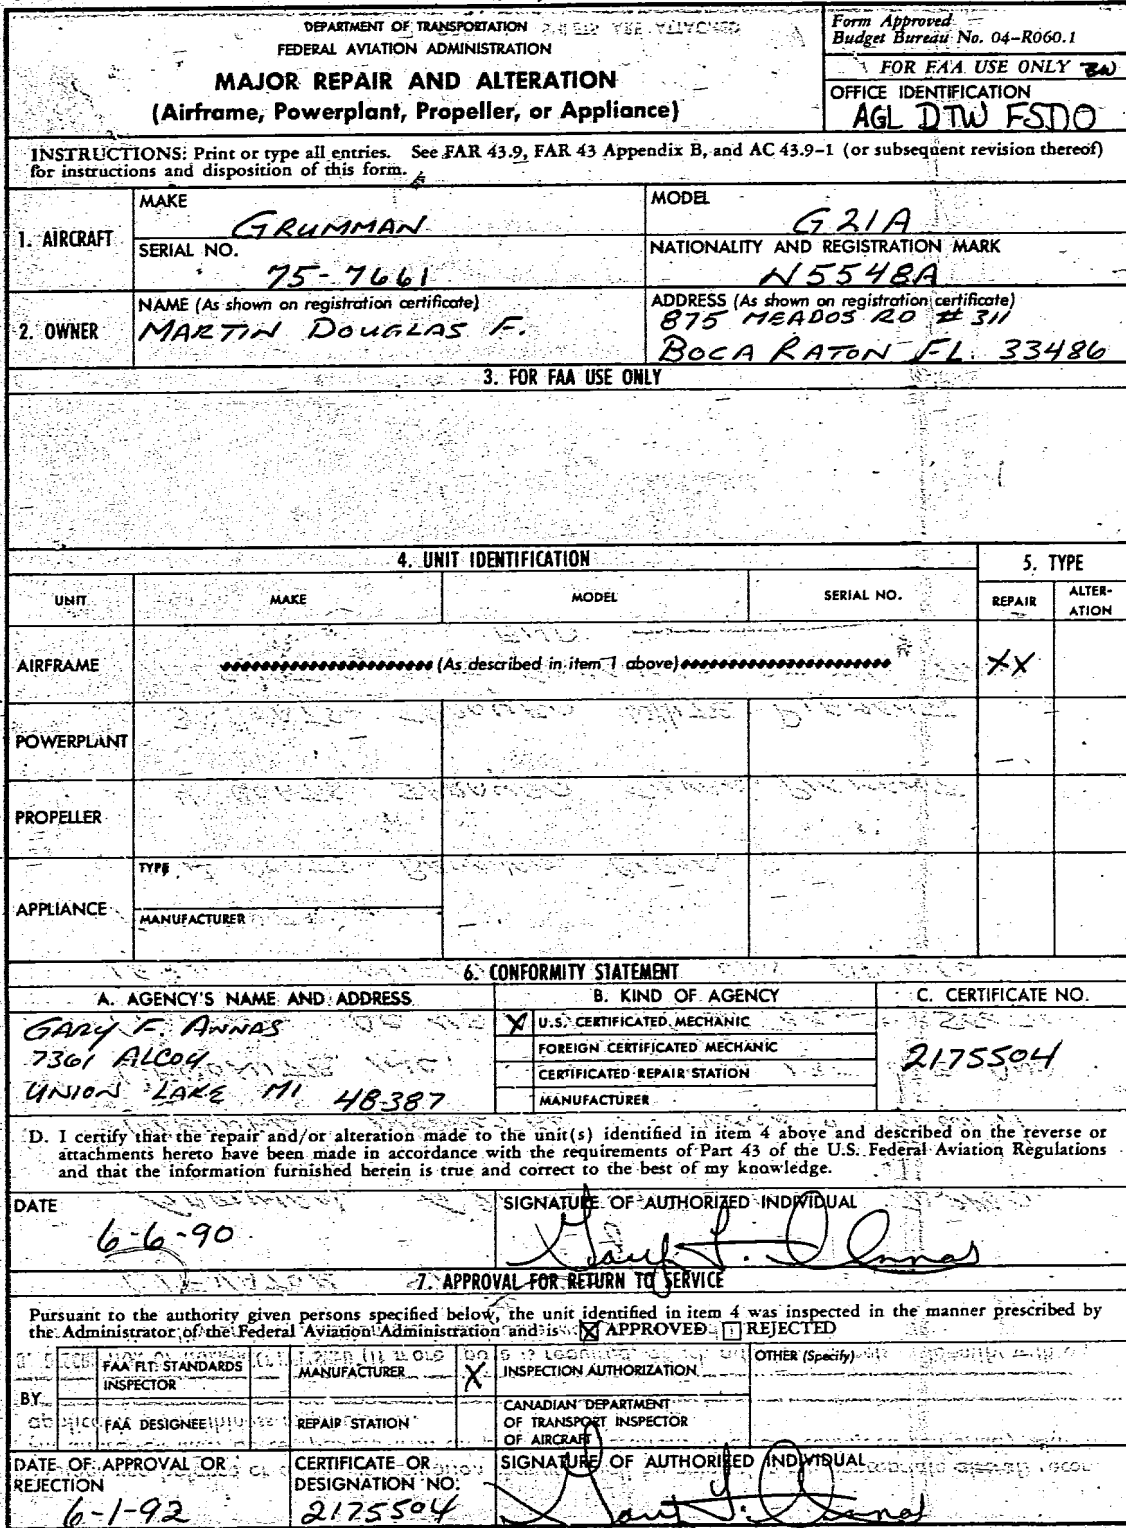 DEPARTMENT OF TRANSPORTATION
FEDERAL AVIATION ADMINISTRATION
MAJOR REPAIR AND ALTERATION
(Airframe, Powerplant, Propeller, or Appliance)
Form Approved
Budget Bureau No. 04-R060.1
FOR FAA USE ONLY BW
OFFICE IDENTIFICATION
AGL DTW FSDO
INSTRUCTIONS: Print or type all entries. See FAR 43.9, FAR 43 Appendix B, and AC 43.9-1 (or subsequent revision thereof)
for instructions and disposition of this form.
1. AIRCRAFT
MAKE
GRUMMAN
MODEL
G21A
SERIAL NO.
75-7661
NATIONALITY AND REGISTRATION MARK
N5548A
2. OWNER
NAME (As shown on registration certificate)
MARTIN DOUGLAS F.
ADDRESS (As shown on registration certificate)
875 MEADOS RD # 311
BOCA RATON FL. 33486
3. FOR FAA USE ONLY
4. UNIT IDENTIFICATION
5. TYPE
UNIT
MAKE
MODEL
SERIAL NO.
REPAIR
ALTER-
ATION
AIRFRAME
(As described in item 1 above)
XX
POWERPLANT
PROPELLER
APPLIANCE
TYPE
MANUFACTURER
6. CONFORMITY STATEMENT
A. AGENCY'S NAME AND ADDRESS
B. KIND OF AGENCY
C. CERTIFICATE NO.
GARY F. ANNAS
7361 ALCOY
UNION LAKE MI 48387
X U.S. CERTIFICATED MECHANIC
FOREIGN CERTIFICATED MECHANIC
CERTIFICATED REPAIR STATION
MANUFACTURER
2175504
D. I certify that the repair and/or alteration made to the unit(s) identified in item 4 above and described on the reverse or
attachments hereto have been made in accordance with the requirements of Part 43 of the U.S. Federal Aviation Regulations
and that the information furnished herein is true and correct to the best of my knowledge.
DATE
6-6-90
SIGNATURE OF AUTHORIZED INDIVIDUAL
Gary F. Annas
7. APPROVAL FOR RETURN TO SERVICE
Pursuant to the authority given persons specified below, the unit identified in item 4 was inspected in the manner prescribed by
the Administrator of the Federal Aviation Administration and is X APPROVED REJECTED
BY
FAA FLT. STANDARDS
INSPECTOR
MANUFACTURER
X INSPECTION AUTHORIZATION
OTHER (Specify)
FAA DESIGNEE
REPAIR STATION
CANADIAN DEPARTMENT
OF TRANSPORT INSPECTOR
OF AIRCRAFT
DATE OF APPROVAL OR
REJECTION
6-1-92
CERTIFICATE OR
DESIGNATION NO.
2175504
SIGNATURE OF AUTHORIZED INDIVIDUAL
Gary F. Annas